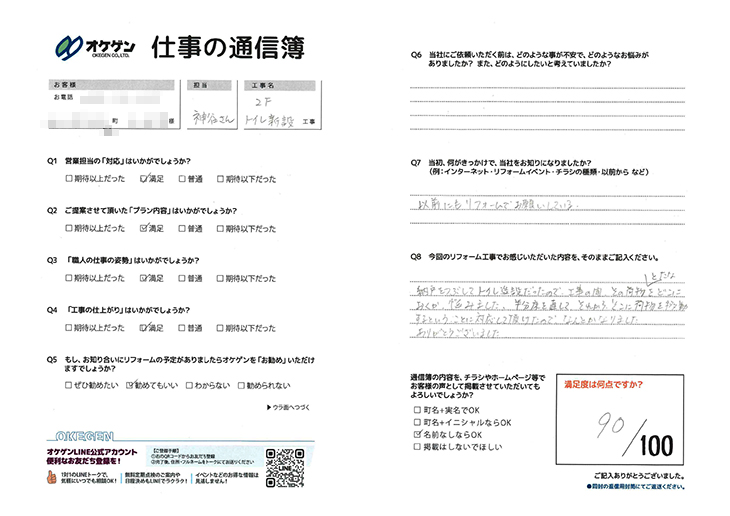 オケゲン
OKEGEN CO.,LTD.
仕事の通信簿
お客様
お電話
町
様
担当
神谷さん
工事名
2F
トイレ新設 工事
Q1 営業担当の「対応」はいかがでしょうか?
□期待以上だった ☑満足 □普通 □期待以下だった
Q2 ご提案させて頂いた「プラン内容」はいかがでしょうか?
□期待以上だった ☑満足 □普通 □期待以下だった
Q3 「職人の仕事の姿勢」はいかがでしょうか?
□期待以上だった ☑満足 □普通 □期待以下だった
Q4 「工事の仕上がり」はいかがでしょうか?
□期待以上だった ☑満足 □普通 □期待以下だった
Q5 もし、お知り合いにリフォームの予定がありましたらオケゲンを「お勧め」いただけ
ますでしょうか?
□ぜひ勧めたい ☑勧めてもいい □わからない □勧められない
▶ウラ面へつづく
OKEGEN
オケゲンLINE公式アカウント
便利なお友だち登録を!
【ご登録手順】
①右のQRコードからお友だち登録
②完了後、住所・フルネームをトークにてお送りください
1対1のLINEトークで、
気軽にいつでも相談OK!
無料定期点検のご案内や
日程決めもLINEでラクラク!
イベントなどのお得な情報は
見逃しません!
Q6 当社にご依頼いただく前は、どのような事が不安で、どのようなお悩みが
ありましたか? また、どのようにしたいと考えていましたか?
Q7 当初、何がきっかけで、当社をお知りになりましたか?
(例:インターネット・リフォームイベント・チラシの種類・以前から など)
以前にもリフォームでお願いしている。
Q8 今回のリフォーム工事でお感じいただいた内容を、そのままご記入ください。
とだな
納戸をつぶしてトイレ増設だったので、工事の間、その荷物をどこに
おくか、悩みました。半分床を直して、それからそこに荷物を移動
するということに対応して頂けたので、なんとかなりました
ありがとうございます。
通信簿の内容を、チラシやホームページ等で
お客様の声として掲載させていただいても
よろしいでしょうか?
□町名+実名でOK
□町名+イニシャルならOK
☑名前なしならOK
□掲載はしないでほしい
満足度は何点ですか?
90/100
ご記入ありがとうございました。
●同封の返信用封筒にてご返送ください。